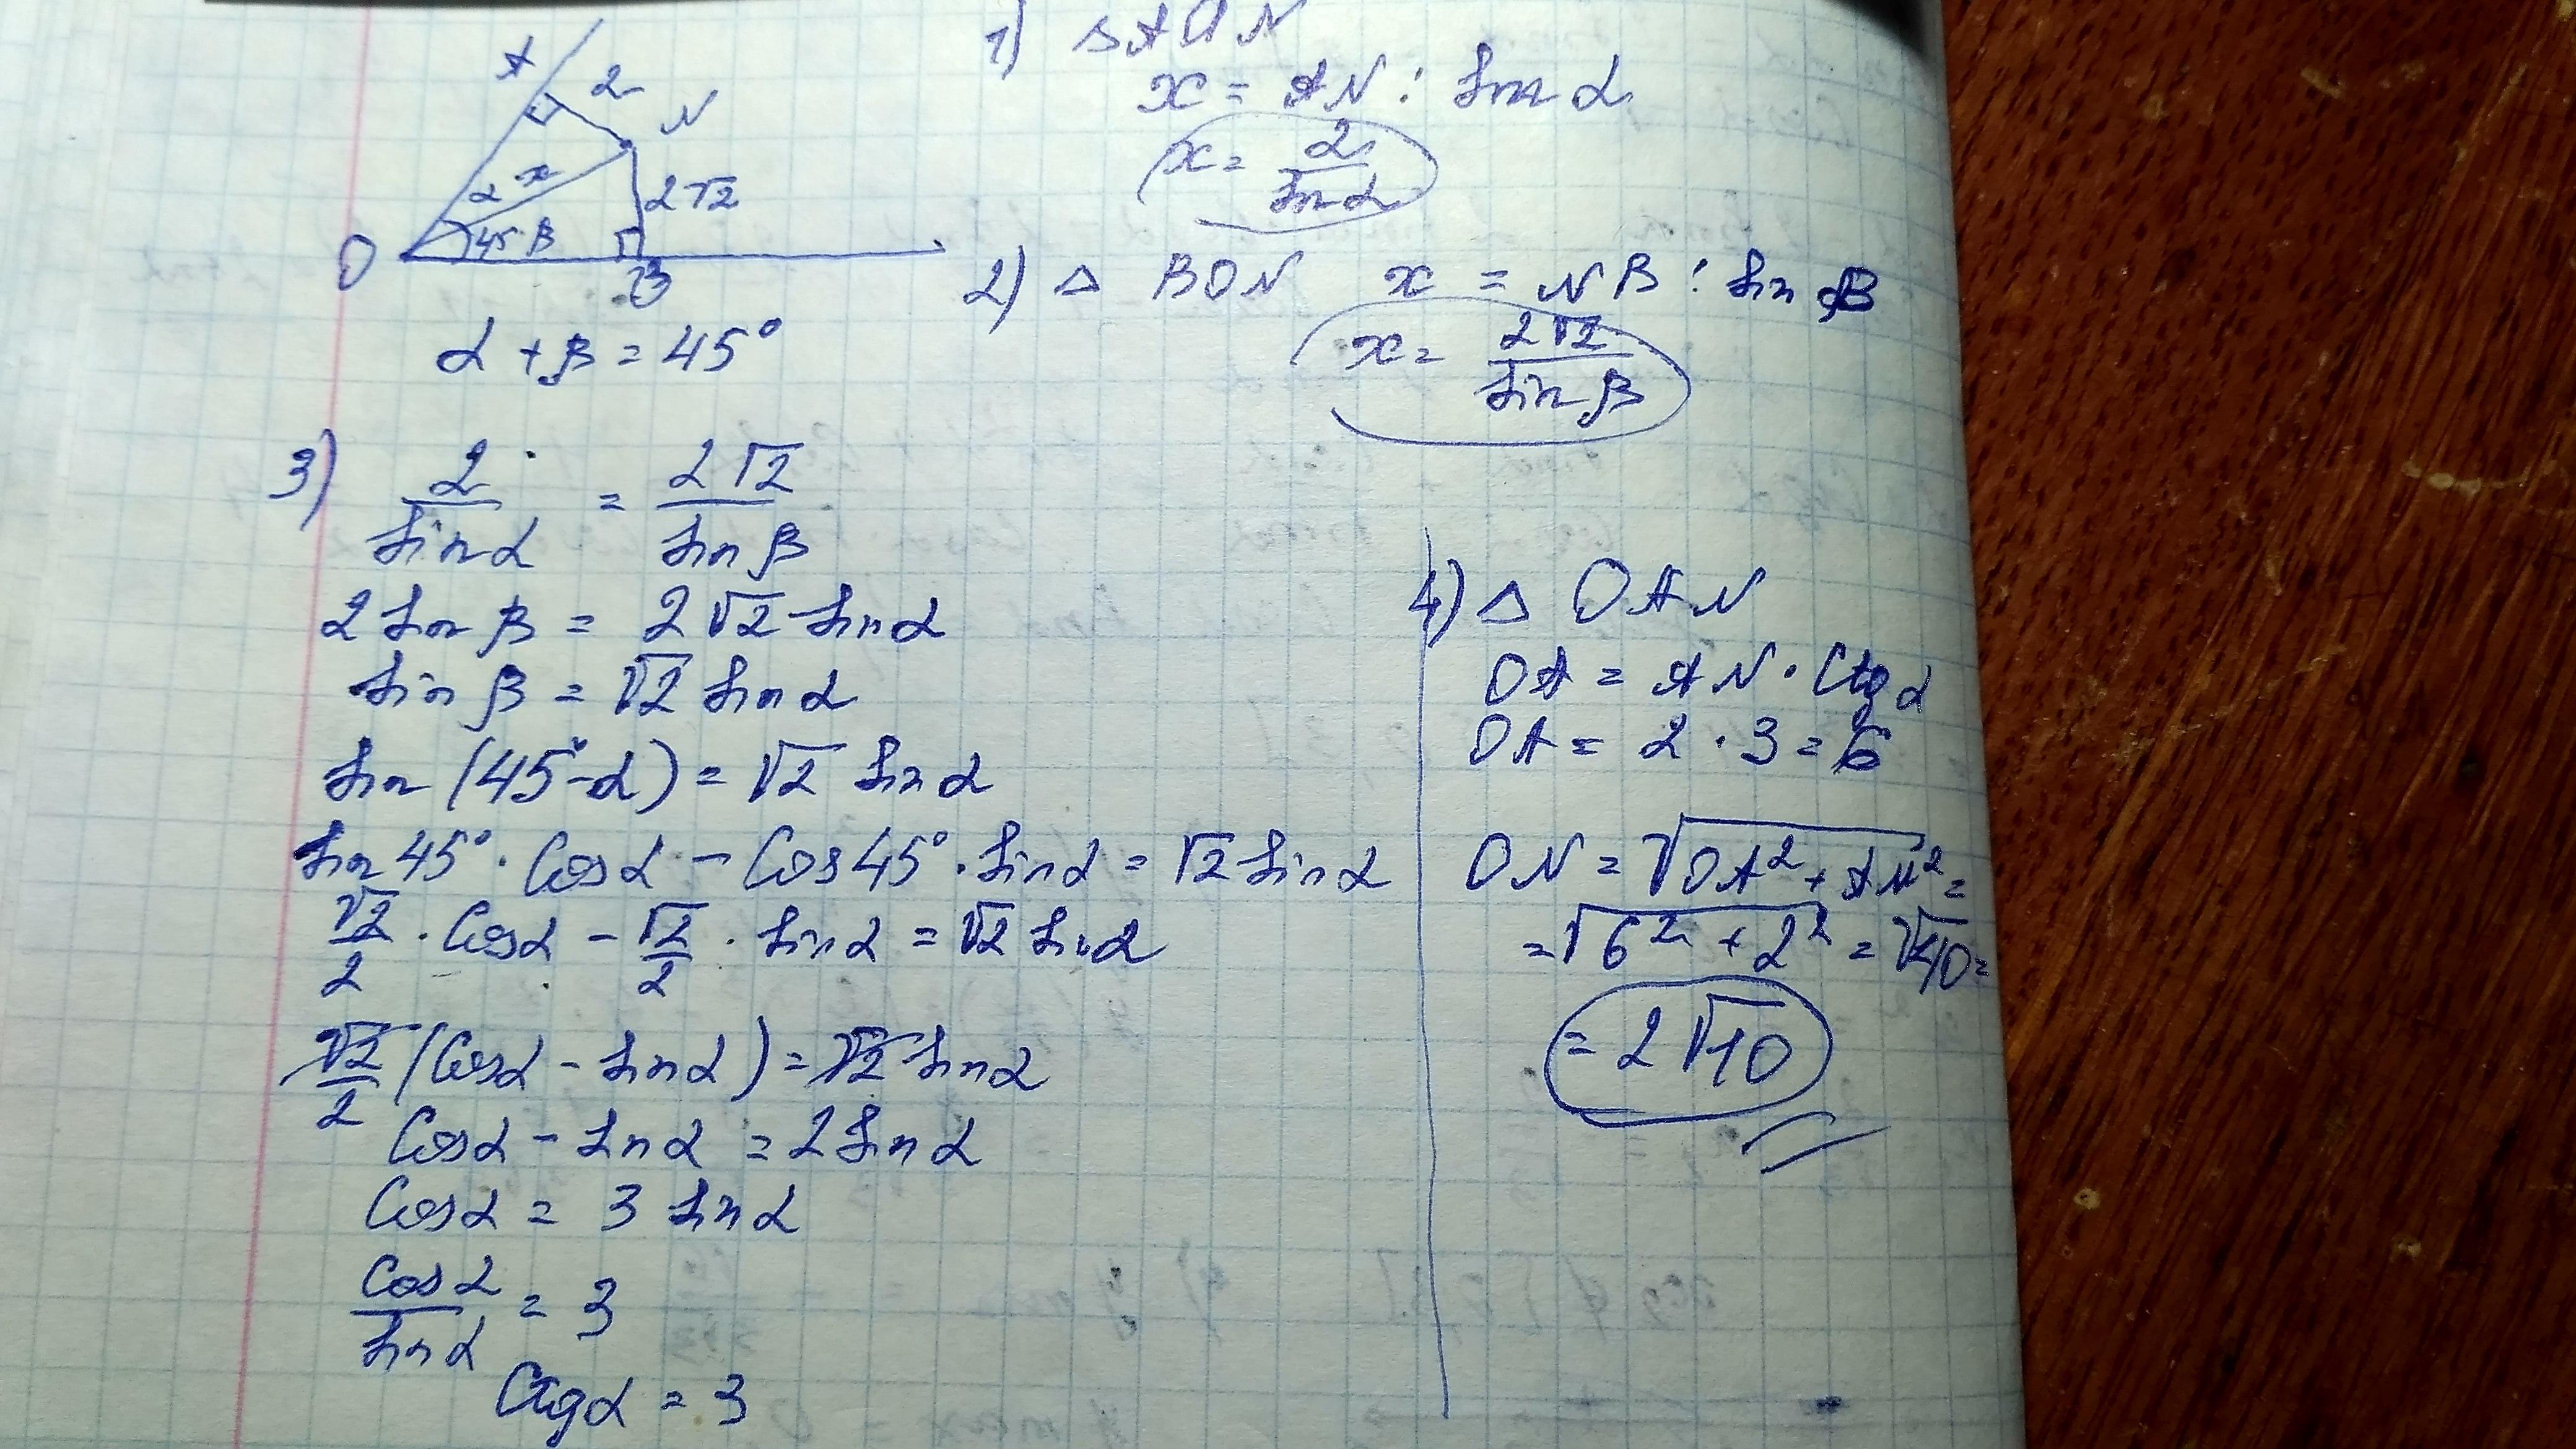 A
2
N
α x
2√2
45° β
O
B
α + β = 45°
1) △ AON
x = AN : sin α
x = 2/sin α
2) △ BON x = NB : sin β
x = 2√2/sin β
3) 2/sin α = 2√2/sin β
2 sin β = 2√2 sin α
sin β = √2 sin α
sin (45° - α) = √2 sin α
sin 45° · cos α - cos 45° · sin α = √2 sin α
√2/2 · cos α - √2/2 · sin α = √2 sin α
√2/2 (cos α - sin α) = √2 sin α
cos α - sin α = 2 sin α
cos α = 3 sin α
cos α/sin α = 3
ctg α = 3
4) △ OAN
OA = AN · ctg α
OA = 2 · 3 = 6
ON = √OA² + AN² =
= √6² + 2² = √40 =
= 2√10